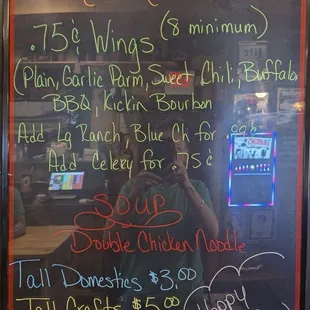 .75¢ Wings (8 minimum)
(Plain, Garlic Parm, Sweet Chili, Buffalo
BBQ, Kickin Bourbon
Add Lg Ranch, Blue Ch for .99¢
Add Celery for .75¢
SOUP
Double Chicken Noodle
Tall Domestics $3.00
Tall Crafts $5.00
Happy